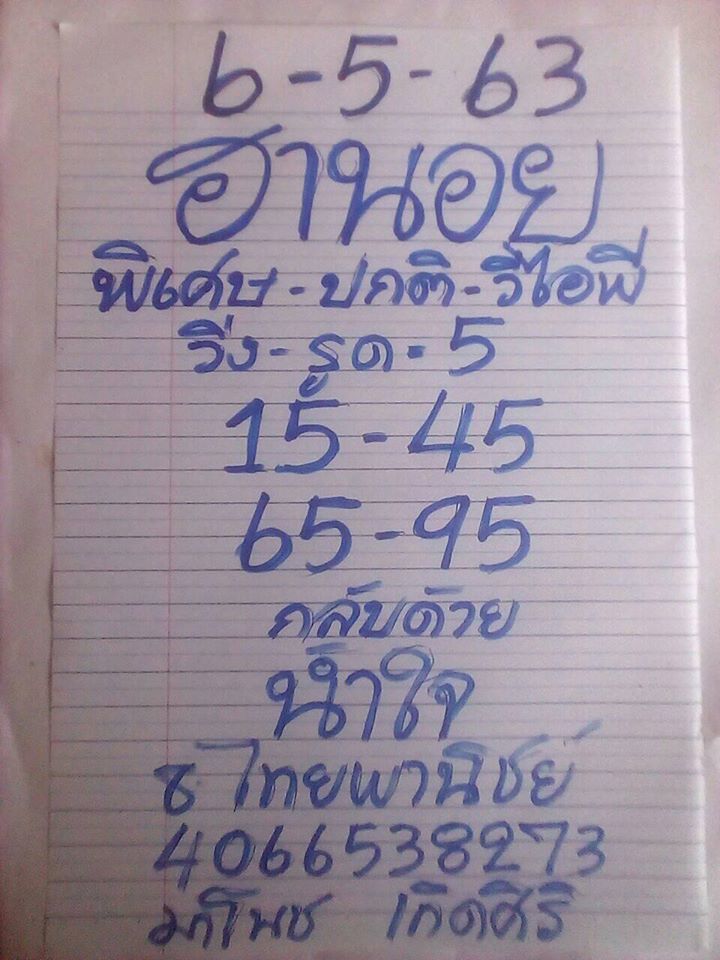 6-5-63
ฮานอย
พิเศษ-ปกติ-วีไอพี
วิ่ง-รูด-5
15-45
65-95
กลับด้วย
น้ำใจ
ธ ไทยพานิชย์
4066538273
มาโนช เกิดศิริ